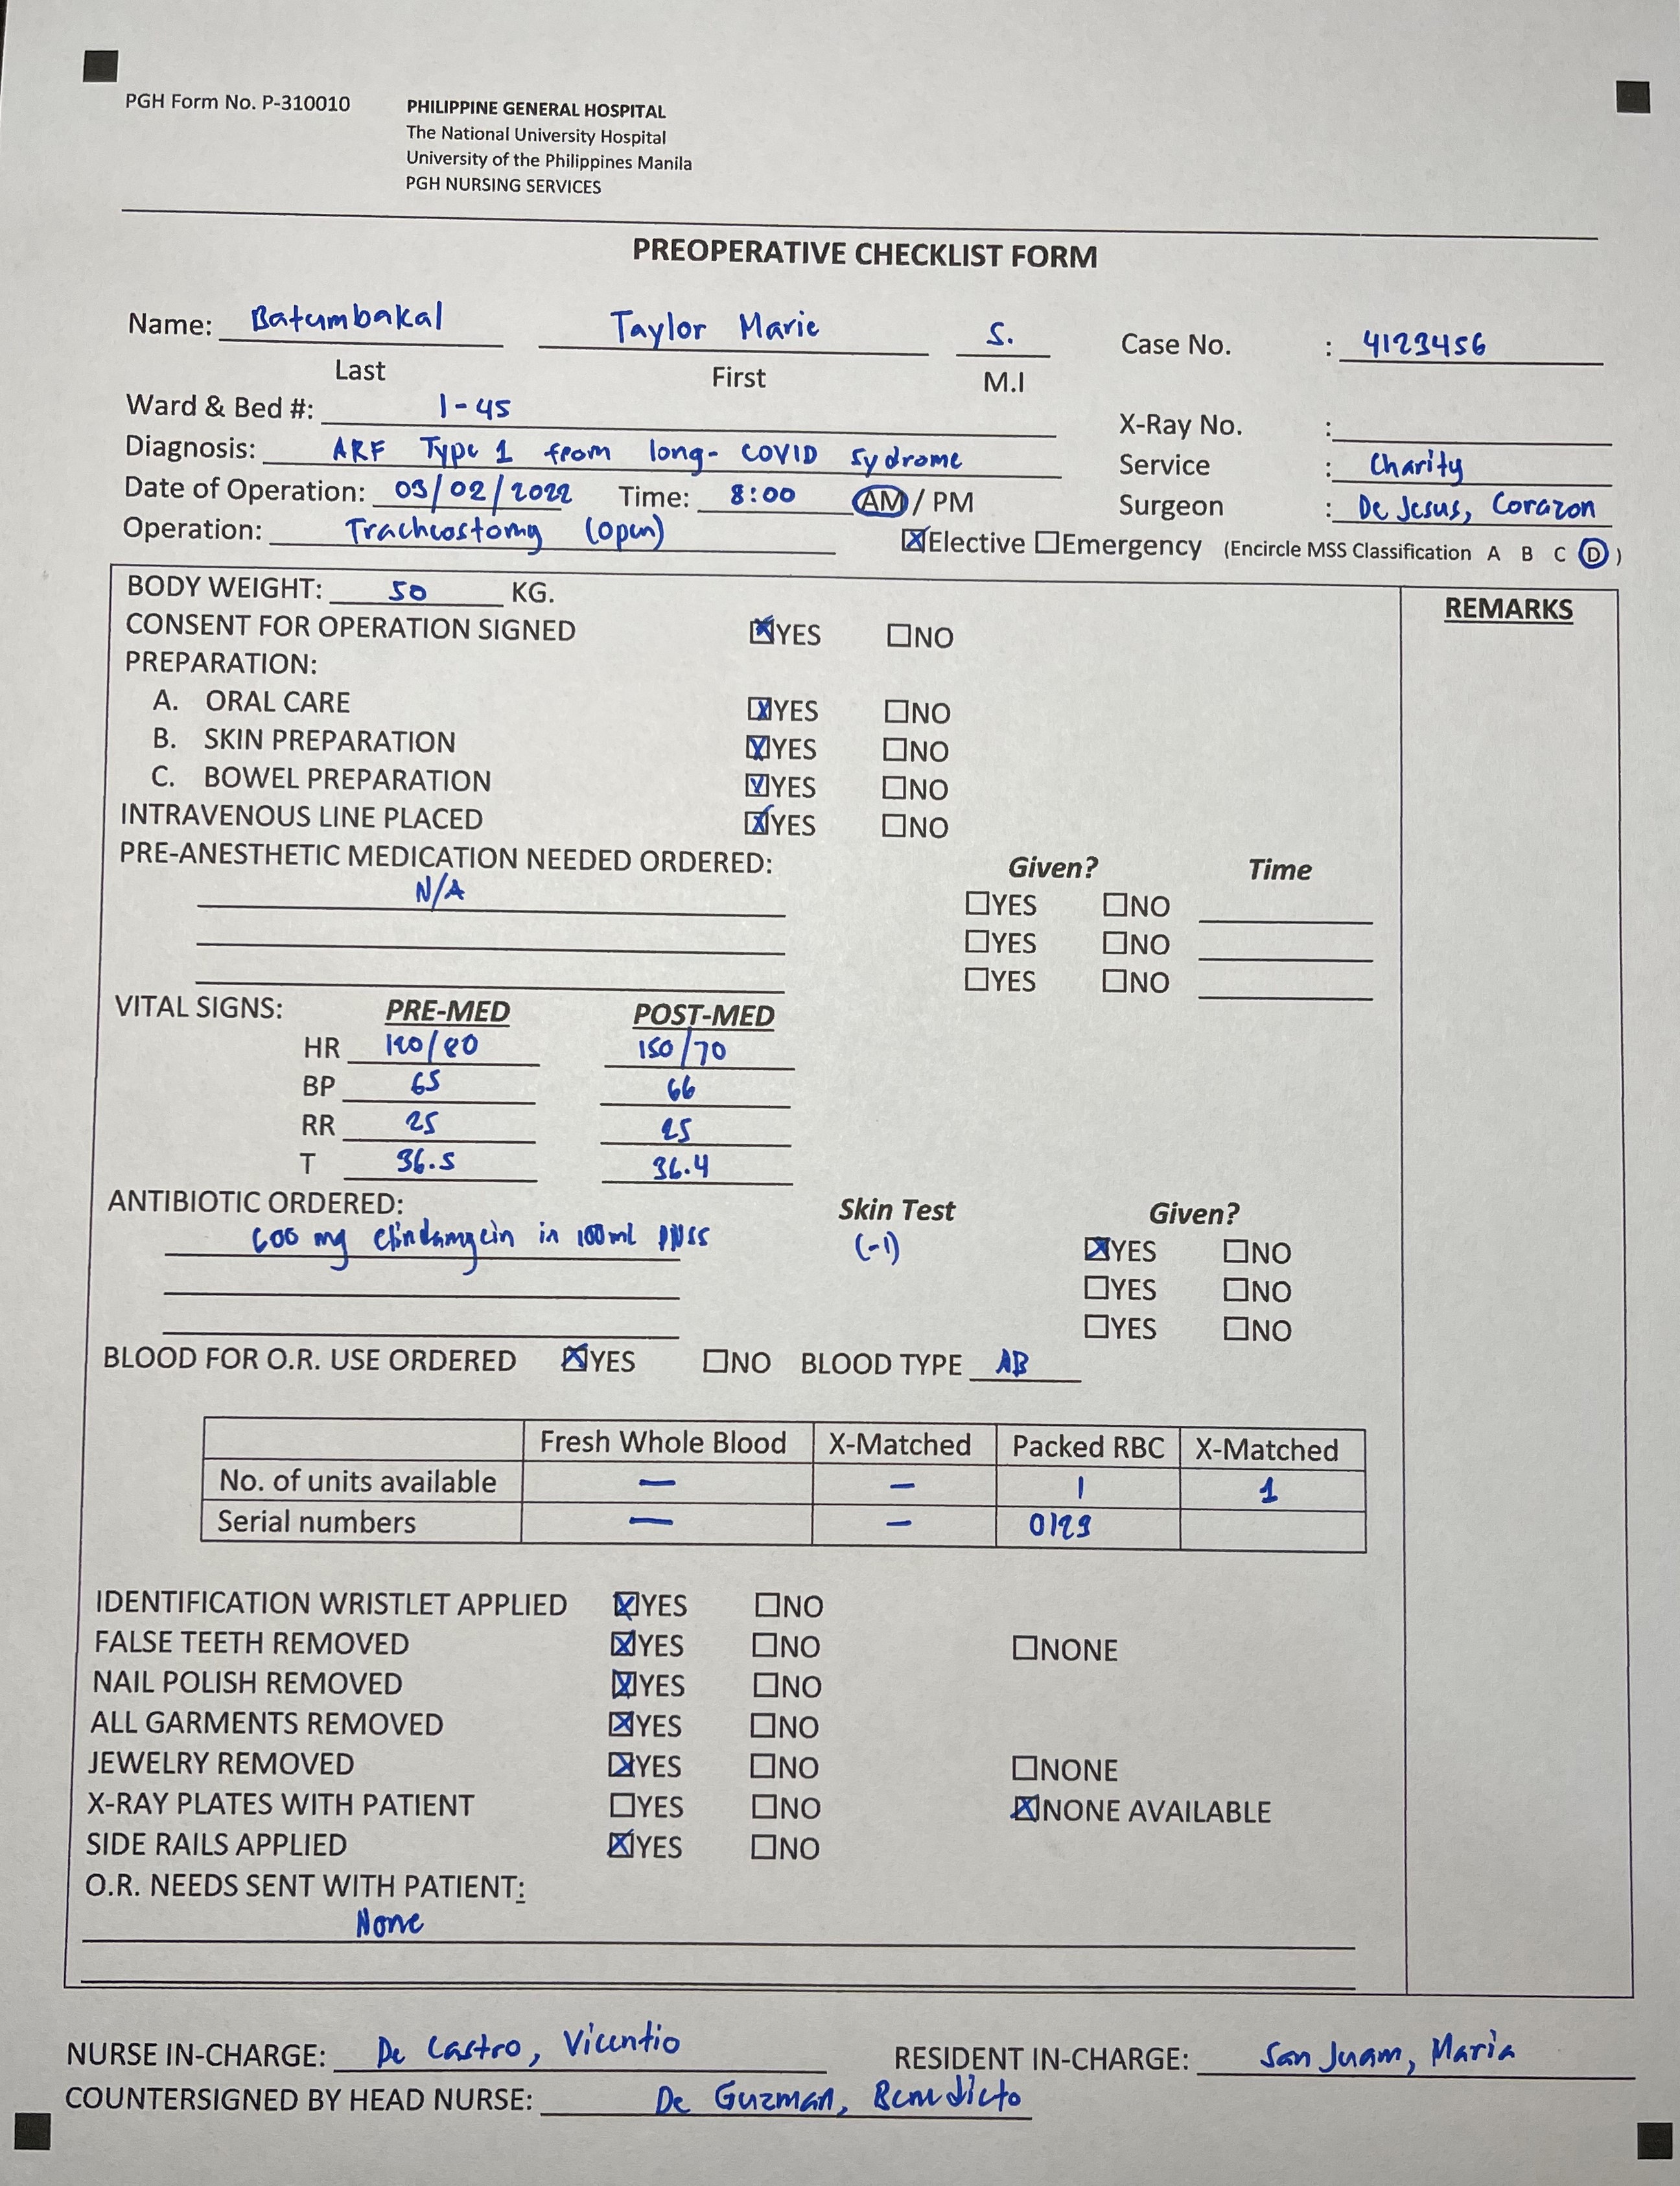 PGH Form No. P-310010
PHILIPPINE GENERAL HOSPITAL
The National University Hospital
University of the Philippines Manila
PGH NURSING SERVICES
PREOPERATIVE CHECKLIST FORM
Name: Batumbakal Taylor Marie S. Case No. : 4123456
Last First M.I
Ward & Bed #: 1-45 X-Ray No. :
Diagnosis: ARF Type 1 from long- COVID sydrome Service : Charity
Date of Operation: 03/02/2022 Time: 8:00 AM / PM Surgeon : De Jesus, Corazon
Operation: Tracheostomy (open) ☒Elective ☐Emergency (Encircle MSS Classification A B C D )
BODY WEIGHT: 50 KG. REMARKS
CONSENT FOR OPERATION SIGNED ☒YES ☐NO
PREPARATION:
A. ORAL CARE ☒YES ☐NO
B. SKIN PREPARATION ☒YES ☐NO
C. BOWEL PREPARATION ☒YES ☐NO
INTRAVENOUS LINE PLACED ☒YES ☐NO
PRE-ANESTHETIC MEDICATION NEEDED ORDERED: Given? Time
N/A ☐YES ☐NO
☐YES ☐NO
☐YES ☐NO
VITAL SIGNS: PRE-MED POST-MED
HR 120/80 150/70
BP 65 66
RR 25 25
T 36.5 36.4
ANTIBIOTIC ORDERED: Skin Test Given?
600 mg clindamycin in 100ml PNSS (-1) ☒YES ☐NO
☐YES ☐NO
☐YES ☐NO
BLOOD FOR O.R. USE ORDERED ☒YES ☐NO BLOOD TYPE AB
Fresh Whole Blood X-Matched Packed RBC X-Matched
No. of units available — – 1 1
Serial numbers — – 0129
IDENTIFICATION WRISTLET APPLIED ☒YES ☐NO
FALSE TEETH REMOVED ☒YES ☐NO ☐NONE
NAIL POLISH REMOVED ☒YES ☐NO
ALL GARMENTS REMOVED ☒YES ☐NO
JEWELRY REMOVED ☒YES ☐NO ☐NONE
X-RAY PLATES WITH PATIENT ☐YES ☐NO ☒NONE AVAILABLE
SIDE RAILS APPLIED ☒YES ☐NO
O.R. NEEDS SENT WITH PATIENT:
None
NURSE IN-CHARGE: De Castro, Vicentio RESIDENT IN-CHARGE: San Juam, Maria
COUNTERSIGNED BY HEAD NURSE: De Guzman, Benedicto